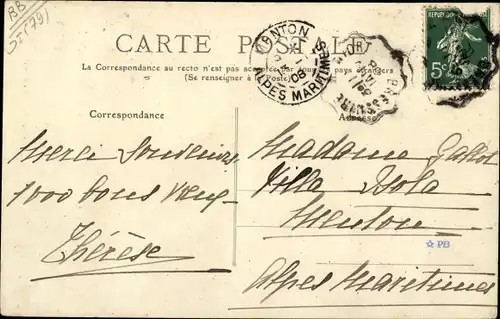 BB
DT(79)
CARTE POSTALE
La Correspondance au recto n'est pas acceptée par tous les pays étrangers
(Se renseigner à la Poste)
MENTON
ALPES MARITIMES
08
5c
Correspondance
Adresse
Merci Souvenir
1000 bons vœux
Thérèse
Madame
Villa Isola
Menton
☆ PB
Alpes Maritimes